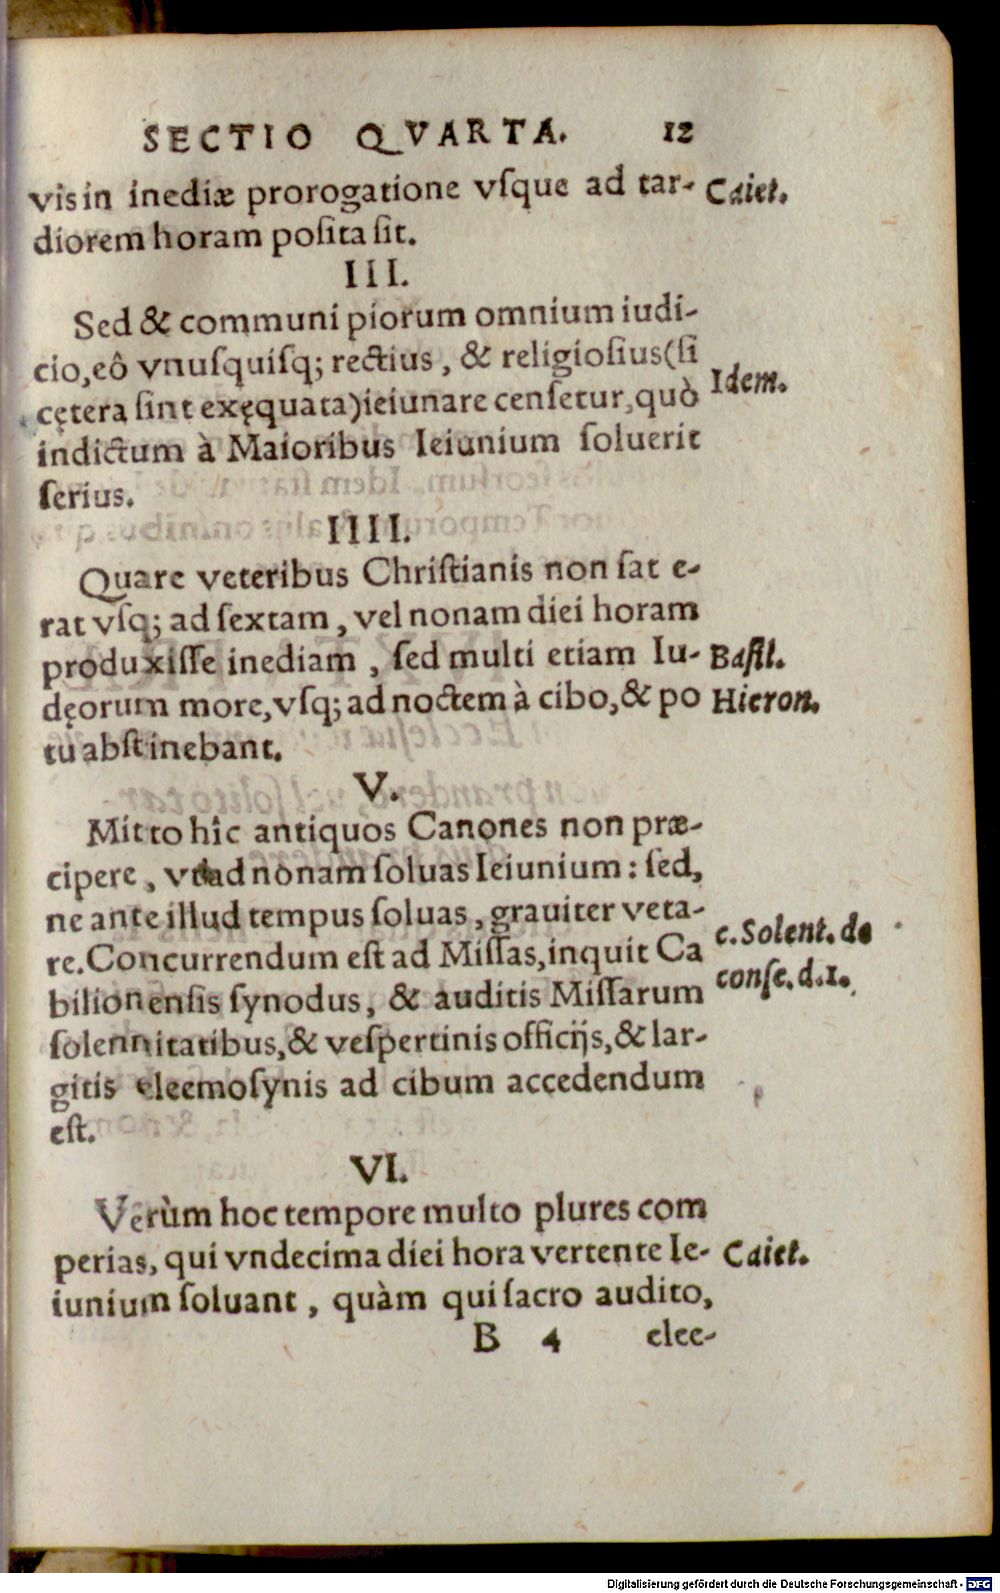 SECTIO QVARTA. 12
vis in inediæ prorogatione vſque ad tar- Caiet.
diorem horam poſita ſit.
III.
Sed & communi piorum omnium iudi-
cio, eô vnuſquiſq; rectius, & religioſius (ſi
cętera ſint exęquata) ieiunare cenſetur, quò Idem.
indictum à Maioribus Ieiunium ſoluerit
ſerius.
IIII.
Quare veteribus Chriſtianis non ſat e-
rat vſq; ad ſextam, vel nonam diei horam
produxiſſe inediam, ſed multi etiam Iu- Baſil.
dęorum more, vſq; ad noctem à cibo, & po Hieron.
tu abſtinebant.
V.
Mitto hîc antiquos Canones non præ-
cipere, vt ad nonam ſoluas Ieiunium: ſed,
ne ante illud tempus ſoluas, grauiter veta-
re. Concurrendum eſt ad Miſſas, inquit Ca c. Solent. de
bilionenſis ſynodus, & auditis Miſſarum conſe. d. 1.
ſolennitatibus, & veſpertinis officijs, & lar-
gitis eleemoſynis ad cibum accedendum
eſt.
VI.
Verùm hoc tempore multo plures com
perias, qui vndecima diei hora vertente Ie- Caiet.
iunium ſoluant, quàm qui ſacro audito,
B 4 elee-
Digitalisierung gefördert durch die Deutsche Forschungsgemeinschaft - DFG